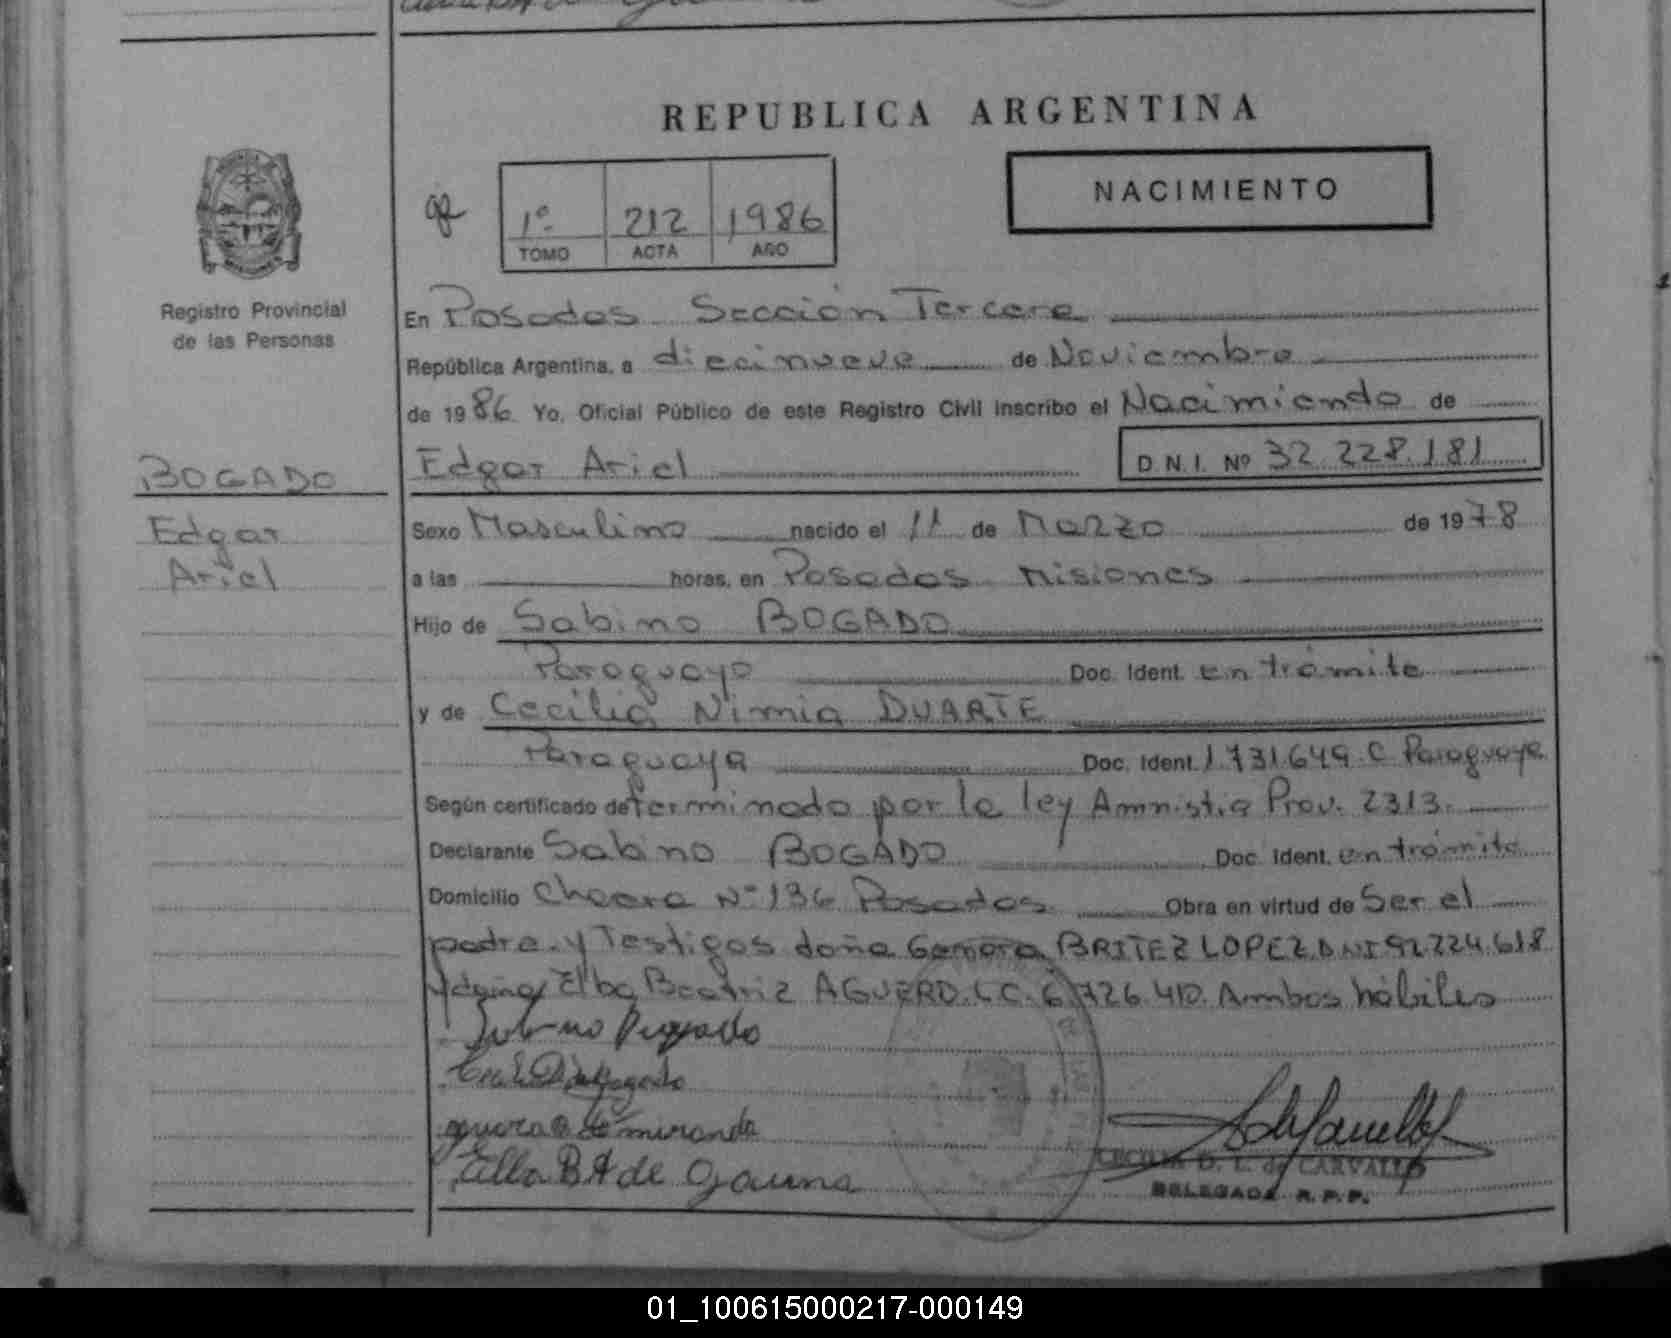 REPUBLICA ARGENTINA
NACIMIENTO
1º 212 1986
TOMO ACTA AÑO
Registro Provincial
de las Personas
En Posadas Sección Tercera
República Argentina, a diecinueve de Noviembre
de 1986 Yo, Oficial Público de este Registro Civil inscribo el Nacimiendo de
BOGADO
Edgar Ariel D.N.I. Nº 32.228.181
Edgar
Ariel
Sexo Masculino nacido el 11 de Marzo de 1978
a las horas, en Posadas Misiones
Hijo de Sabino BOGADO
Paraguayo Doc. Ident. en trámite
y de Cecilia Nimia DUARTE
Paraguaya Doc. Ident. 1.731.649.C Paraguaya
Según certificado determinado por la ley Amnistia Prov. 2313.
Declarante Sabino BOGADO Doc. Ident. en trámite
Domicilio Chacra Nº 136 Posadas Obra en virtud de Ser el
padre y Testigos doña BRITEZ LOPEZ DNI 92.224.618
y doña Elba Beatriz AGUERO.L.C. 6.726.410. Ambos hábiles
Elba B A de Gauna
CECILIA D. L. de CARVALLO
DELEGADA R.P.P.
01_100615000217-000149